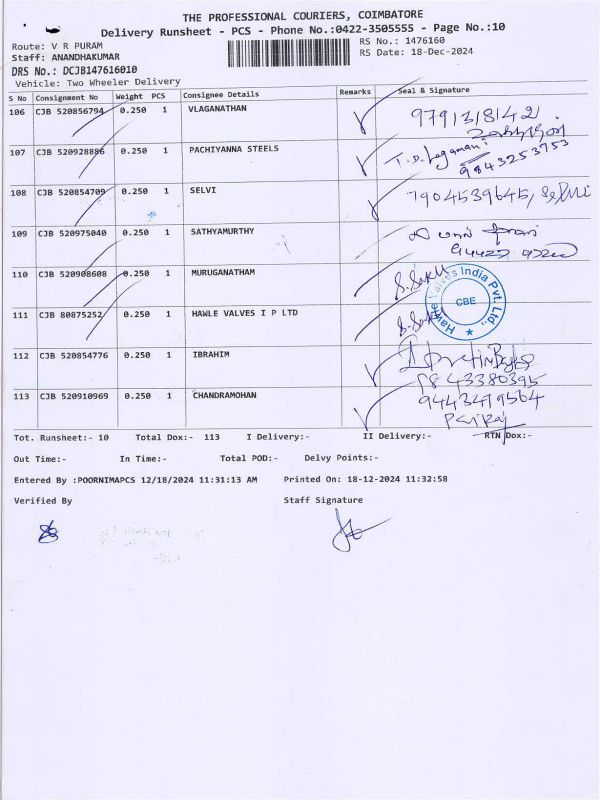 THE PROFESSIONAL COURIERS, COIMBATORE
Delivery Runsheet - PCS - Phone No.:0422-3505555 - Page No.:10
Route: V R PURAM
RS No.: 1476160
Staff: ANANDHAKUMAR
RS Date: 18-Dec-2024
DRS No.: DCJB147616010
Vehicle: Two Wheeler Delivery
S No Consignment No Weight PCS Consignee Details Remarks Seal & Signature
106 CJB 520856794 0.250 1 VLAGANATHAN 9791318142
107 CJB 520928886 0.250 1 PACHIYANNA STEELS 9843253753
108 CJB 520854709 0.250 1 SELVI 7904539645, Selvi
109 CJB 520975040 0.250 1 SATHYAMURTHY
110 CJB 520908608 0.250 1 MURUGANATHAM
111 CJB 80875252 0.250 1 HAWLE VALVES I P LTD
Hawle Valves India Pvt. Ltd.,
CBE
112 CJB 520854776 0.250 1 IBRAHIM
9843380395
113 CJB 520910969 0.250 1 CHANDRAMOHAN 9443479564
Tot. Runsheet:- 10 Total Dox:- 113 I Delivery:- II Delivery:- RTN Dox:-
Out Time:- In Time:- Total POD:- Delvy Points:-
Entered By :POORNIMAPCS 12/18/2024 11:31:13 AM Printed On: 18-12-2024 11:32:58
Verified By Staff Signature